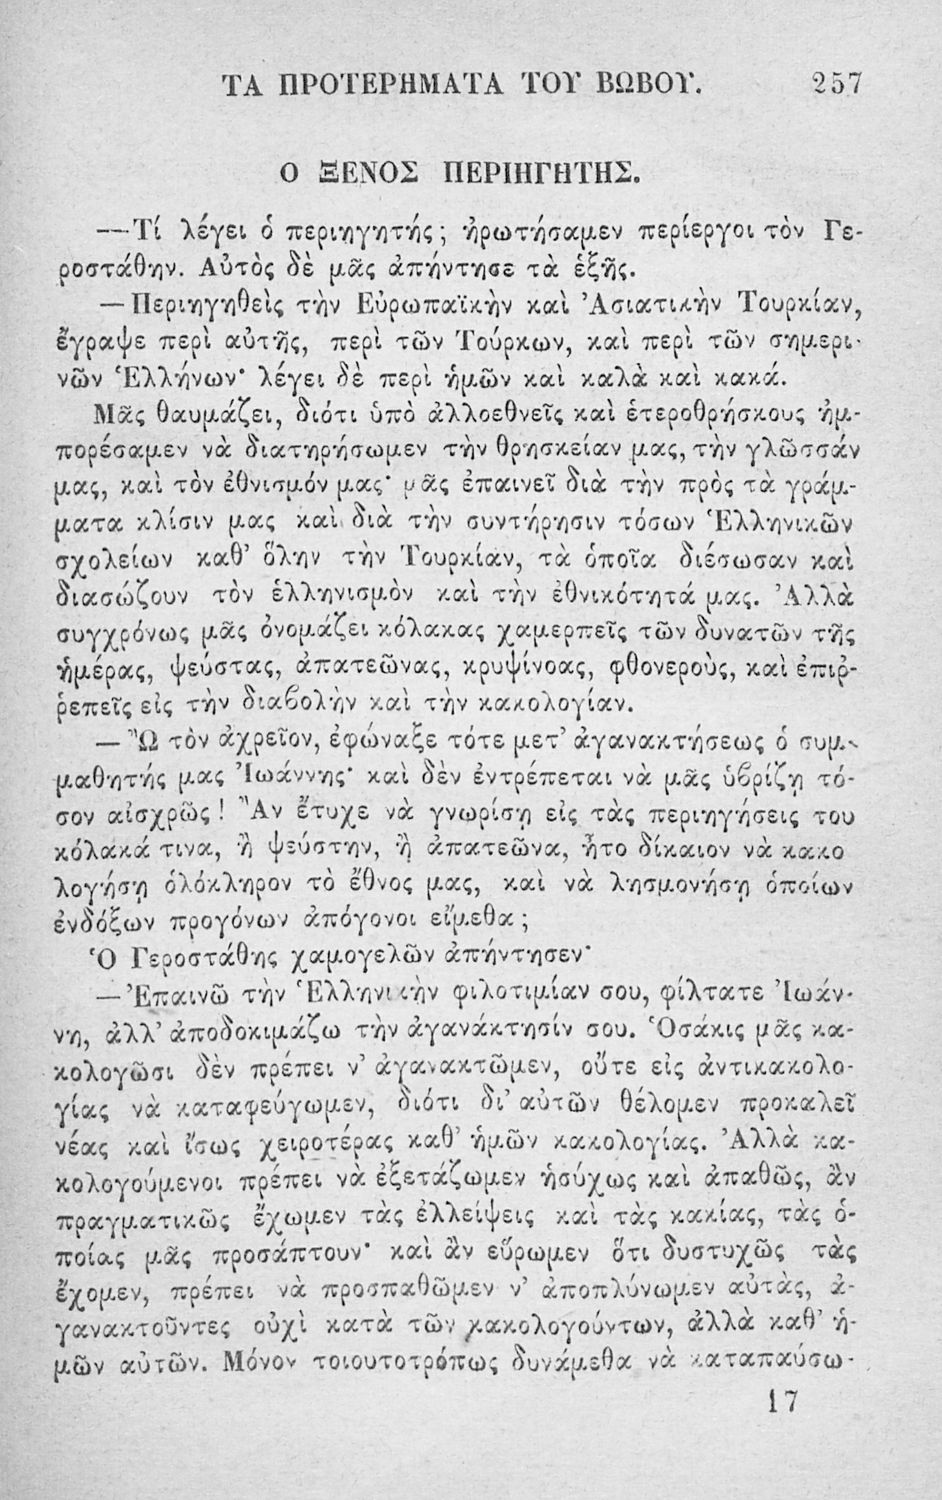 ΤΑ ΠΡΟΤΕΡΗΜΑΤΑ ΤΟΥ ΒΩΒΟΥ. 257
Ο ΞΕΝΟΣ ΠΕΡΙΗΓΗΤΗΣ.
—Τί λέγει ὁ περιηγητής; ἠρωτήσαμεν περίεργοι τὸν Γε-
ροστάθην. Αὐτὸς δὲ μᾶς ἀπήντησε τὰ ἑξῆς.
—Περιηγηθεὶς τὴν Εὐρωπαϊκὴν καὶ Ἀσιατικὴν Τουρκίαν,
ἔγραψε περὶ αὐτῆς, περὶ τῶν Τούρκων, καὶ περὶ τῶν σημερι-
νῶν Ἑλλήνων· λέγει δὲ περὶ ἡμῶν καὶ καλὰ καὶ κακά.
Μᾶς θαυμάζει, διότι ὑπὸ ἀλλοεθνεῖς καὶ ἑτεροθρήσκους ἠμ-
πορέσαμεν νὰ διατηρήσωμεν τὴν θρησκείαν μας, τὴν γλῶσσάν
μας, καὶ τὸν ἐθνισμόν μας· μᾶς ἐπαινεῖ διὰ τὴν πρὸς τὰ γράμ-
ματα κλίσιν μας καὶ διὰ τὴν συντήρησιν τόσων Ἑλληνικῶν
σχολείων καθ’ ὅλην τὴν Τουρκίαν, τὰ ὁποῖα διέσωσαν καὶ
διασώζουν τὸν ἑλληνισμὸν καὶ τὴν ἐθνικότητά μας. Ἀλλὰ
συγχρόνως μᾶς ὀνομάζει κόλακας χαμερπεῖς τῶν δυνατῶν τῆς
ἡμέρας, ψεύστας, ἀπατεῶνας, κρυψίνοας, φθονεροὺς, καὶ ἐπιῤ-
ῥεπεῖς εἰς τὴν διαβολὴν καὶ τὴν κακολογίαν.
— Ὢ τὸν ἀχρεῖον, ἐφώναξε τότε μετ’ ἀγανακτήσεως ὁ συμ-
μαθητής μας Ἰωάννης· καὶ δὲν ἐντρέπεται νὰ μᾶς ὑβρίζῃ τό-
σον αἰσχρῶς! Ἂν ἔτυχε νὰ γνωρίσῃ εἰς τὰς περιηγήσεις του
κόλακά τινα, ἢ ψεύστην, ἢ ἀπατεῶνα, ἦτο δίκαιον νὰ κακο
λογήσῃ ὁλόκληρον τὸ ἔθνος μας, καὶ νὰ λησμονήσῃ ὁποίων
ἐνδόξων προγόνων ἀπόγονοι εἴμεθα;
Ὁ Γεροστάθης χαμογελῶν ἀπήντησεν·
—Ἐπαινῶ τὴν Ἑλληνικὴν φιλοτιμίαν σου, φίλτατε Ἰωάν-
νη, ἀλλ’ ἀποδοκιμάζω τὴν ἀγανάκτησίν σου. Ὁσάκις μᾶς κα-
κολογῶσι δὲν πρέπει ν’ ἀγανακτῶμεν, οὔτε εἰς ἀντικακολο-
γίας νὰ καταφεύγωμεν, διότι δι’ αὐτῶν θέλομεν προκαλεῖ
νέας καὶ ἴσως χειροτέρας καθ’ ἡμῶν κακολογίας. Ἀλλὰ κα-
κολογούμενοι πρέπει νὰ ἐξετάζωμεν ἡσύχως καὶ ἀπαθῶς, ἂν
πραγματικῶς ἔχωμεν τὰς ἐλλείψεις καὶ τὰς κακίας, τὰς ὁ-
ποίας μᾶς προσάπτουν· καὶ ἂν εὕρωμεν ὅτι δυστυχῶς τὰς
ἔχομεν, πρέπει νὰ προσπαθῶμεν ν’ ἀποπλύνωμεν αὐτὰς, ἀ-
γανακτοῦντες οὐχὶ κατὰ τῶν κακολογούντων, ἀλλὰ καθ’ ἡ-
μῶν αὐτῶν. Μόνον τοιουτοτρόπως δυνάμεθα νὰ καταπαύσω-
17